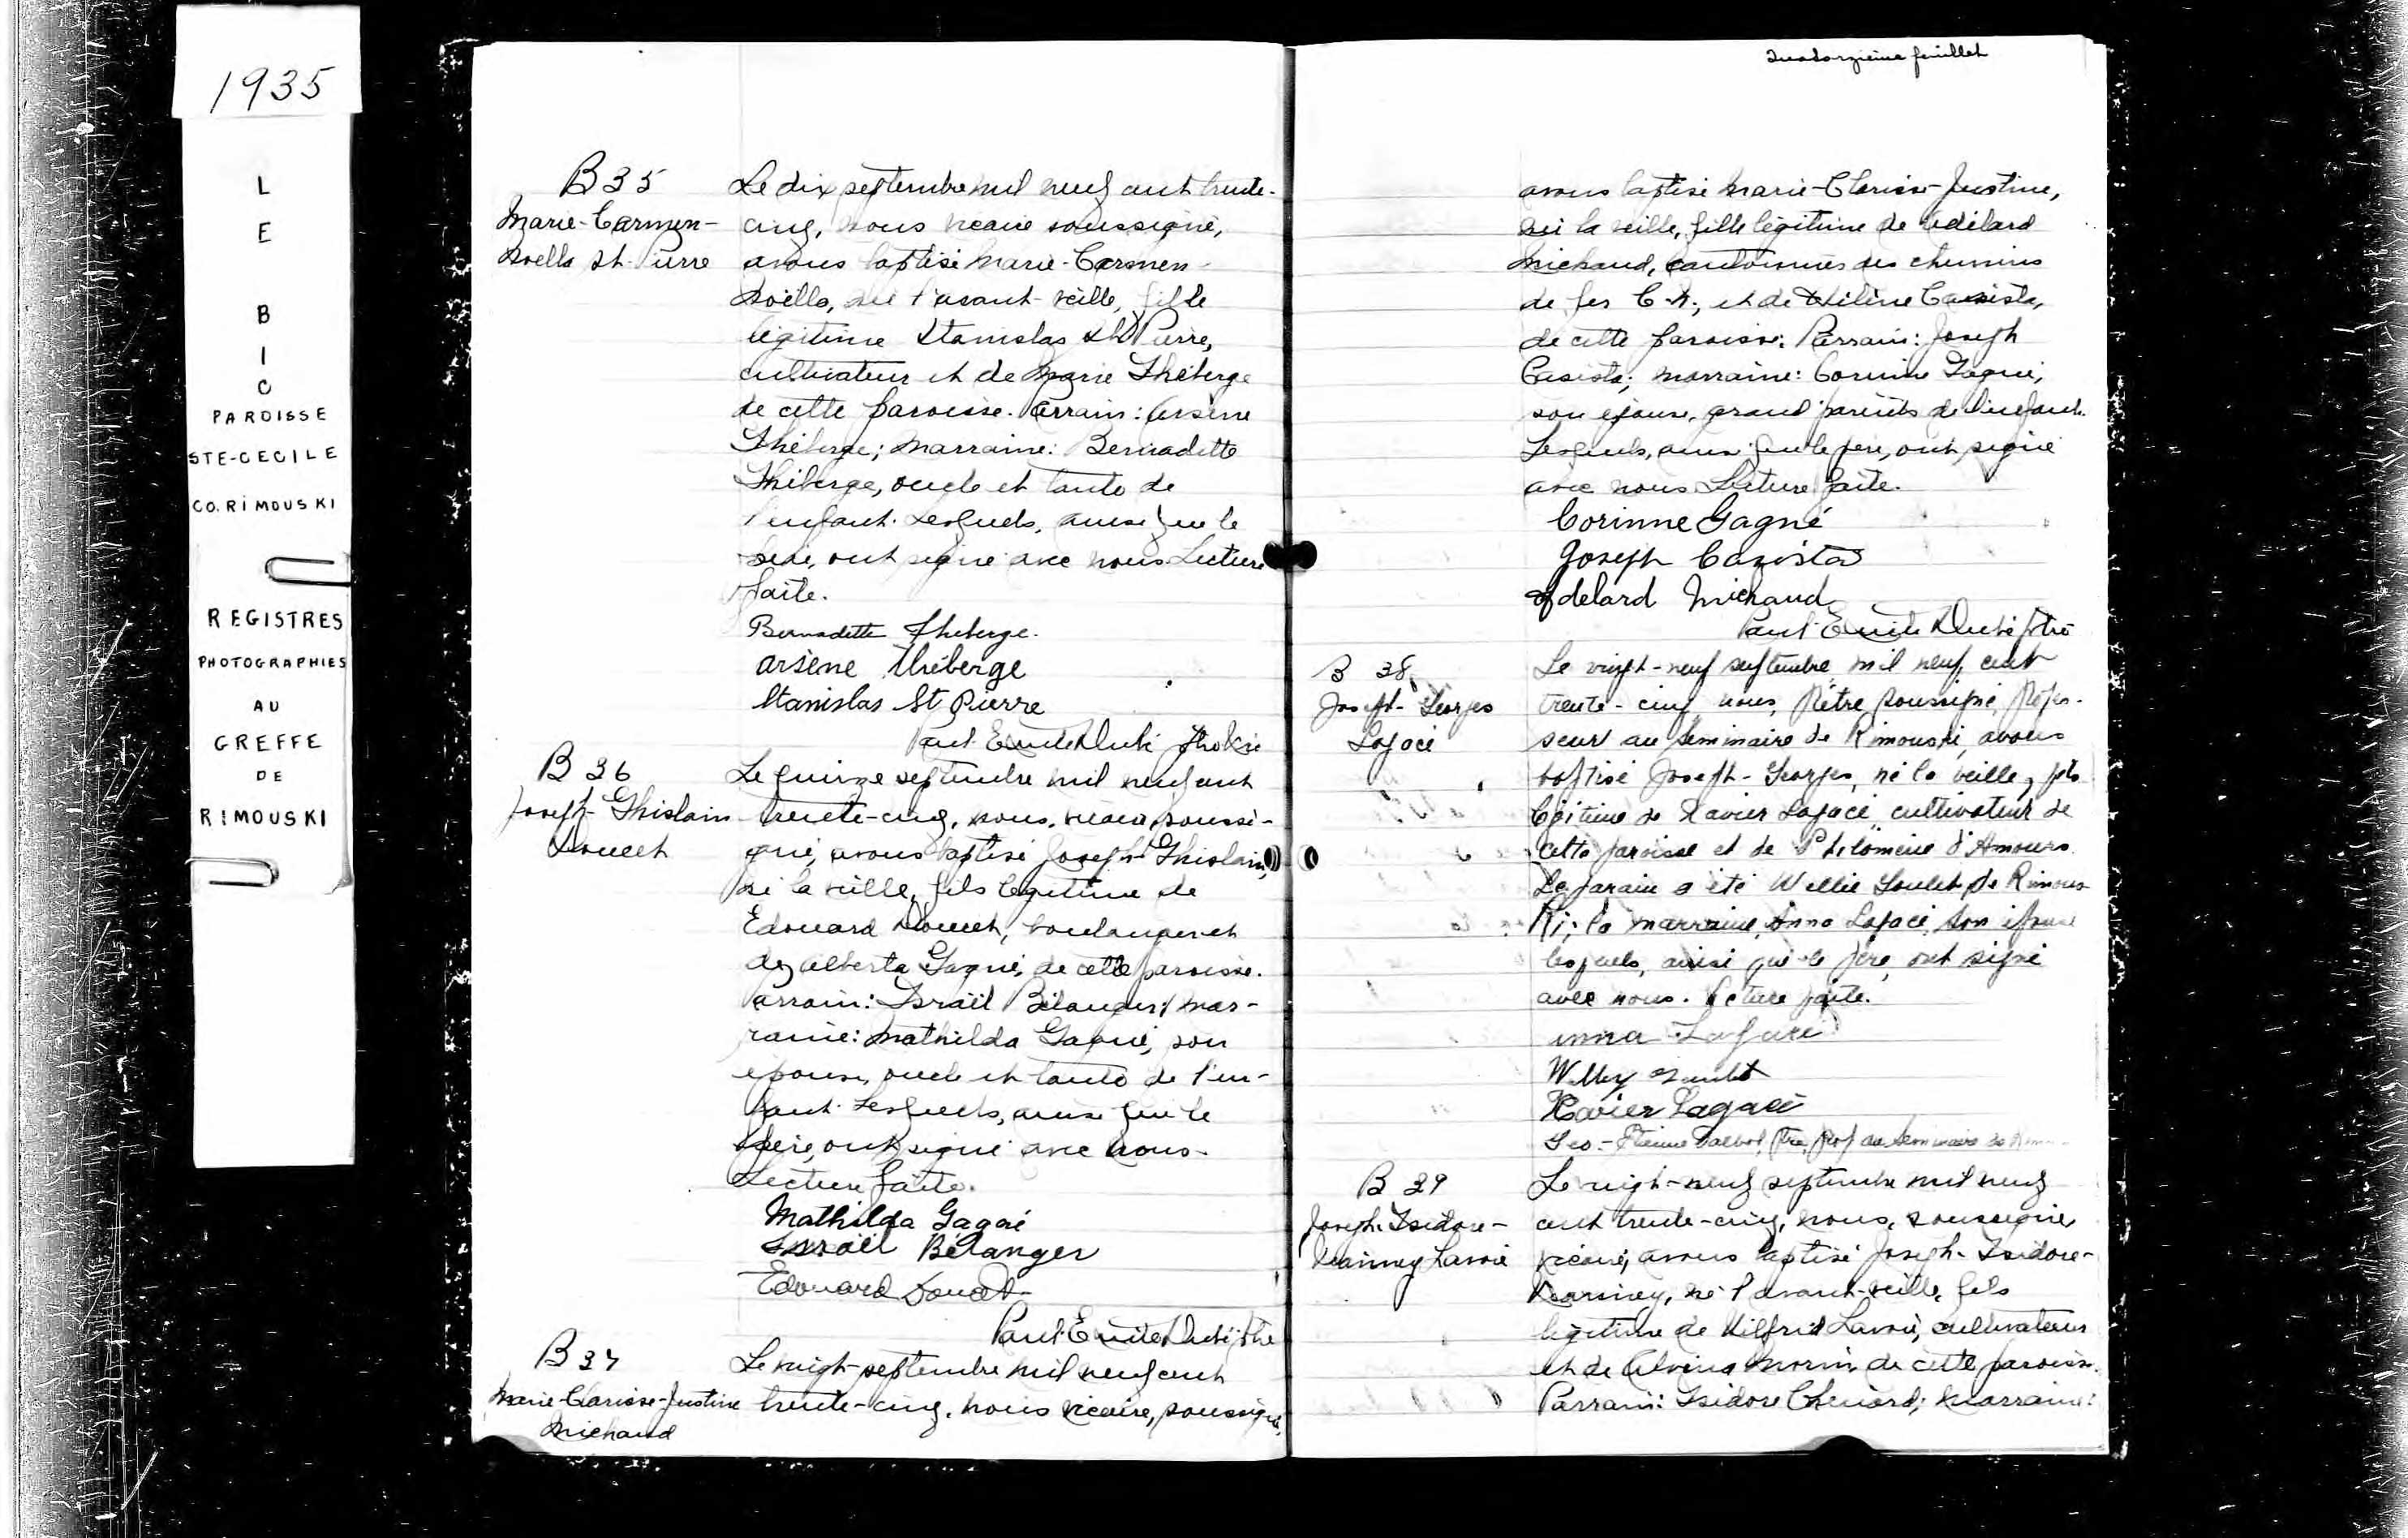 1935
L
E
B
I
C
PAROISSE
STE-CECILE
CO. RIMOUSKI
REGISTRES
PHOTOGRAPHIES
AU
GREFFE
DE
RIMOUSKI
B 35
Marie-Carmen-
Noella St-Pierre
Le dix septembre mil neuf cent trente-
cinq, nous vicaire soussigné,
avons baptisé Marie-Carmen-
Noëlla, née l'avant-veille, fille
légitime Stanislas St Pierre,
cultivateur et de Marie Théberge
de cette paroisse. Parrain: Arsène
Théberge; marraine: Bernadette
Théberge, oncle et tante de
l'enfant. Lesquels, ainsi que le
père, ont signé avec nous. Lecture
faite.
Bernadette Theberge.
Arsène Théberge
Stanislas St Pierre
Paul-Emile Dubé
B 36
Joseph-Ghislain
Doucet
Le quinze septembre mil neuf cent
trente-cinq, nous, vicaire soussi-
gné, avons baptisé Joseph-Ghislain,
né la veille, fils légitime de
Edouard Doucet, boulanger et
de Alberta Gagné, de cette paroisse.
Parrain: Israël Bélanger; mar-
raine: Mathilda Gagné, son
épouse, oncle et tante de l'en-
fant. Lesquels, ainsi que le
père, ont signé avec nous.
Lecture faite.
Mathilda Gagné
Israël Bélanger
Edouard Doucet
Paul-Emile Dubé ptre
B 37
Marie-Clarisse-Justine
Michaud
Le vingt-septembre mil neuf cent
trente-cinq, nous vicaire, soussigné,
Quatorzième feuillet
avons baptisé Marie-Clarisse-Justine,
née la veille, fille légitime de Adélard
Michaud, cantonnier des chemins
de fer C.N., et de Hélène Casista,
de cette paroisse. Parrain: Joseph
Casista; marraine: Corinne Gagné,
son épouse, grand parents de l'enfant.
Lesquels, ainsi que le père, ont signé
avec nous. Lecture faite.
Corinne Gagné
Joseph Casista
Adelard Michaud
Paul-Emile Dubé ptre
B 38
Joseph-Georges
Lagacé
Le vingt-neuf septembre mil neuf cent
trente-cinq nous, Prêtre soussigné, Profes-
seur au Séminaire de Rimouski, avons
baptisé Joseph-Georges, né la veille, fils
légitime de Xavier Lagacé cultivateur de
cette paroisse et de Philomène d'Amours.
Le parain a été Wellie Goulet de Rimous-
ki; la marraine, Anna Lagacé, son épouse
lesquels, ainsi que le père, ont signé
avec nous. Lecture faite.
Anna Lagacé
Willy Goulet
Xavier Lagacé
Geo-Etienne Talbot, Ptre, Prof au Séminaire de
B 39
Joseph-Isidore-
Lavoie
Le vingt-neuf septembre mil neuf
cent trente-cinq, nous, soussigné,
vicaire, avons baptisé Joseph-Isidore-
né l'avant-veille, fils
légitime de Wilfrid Lavoie, cultivateur
et de Alvina Morin, de cette paroisse.
Parrain: Isidore Chénard; marraine: